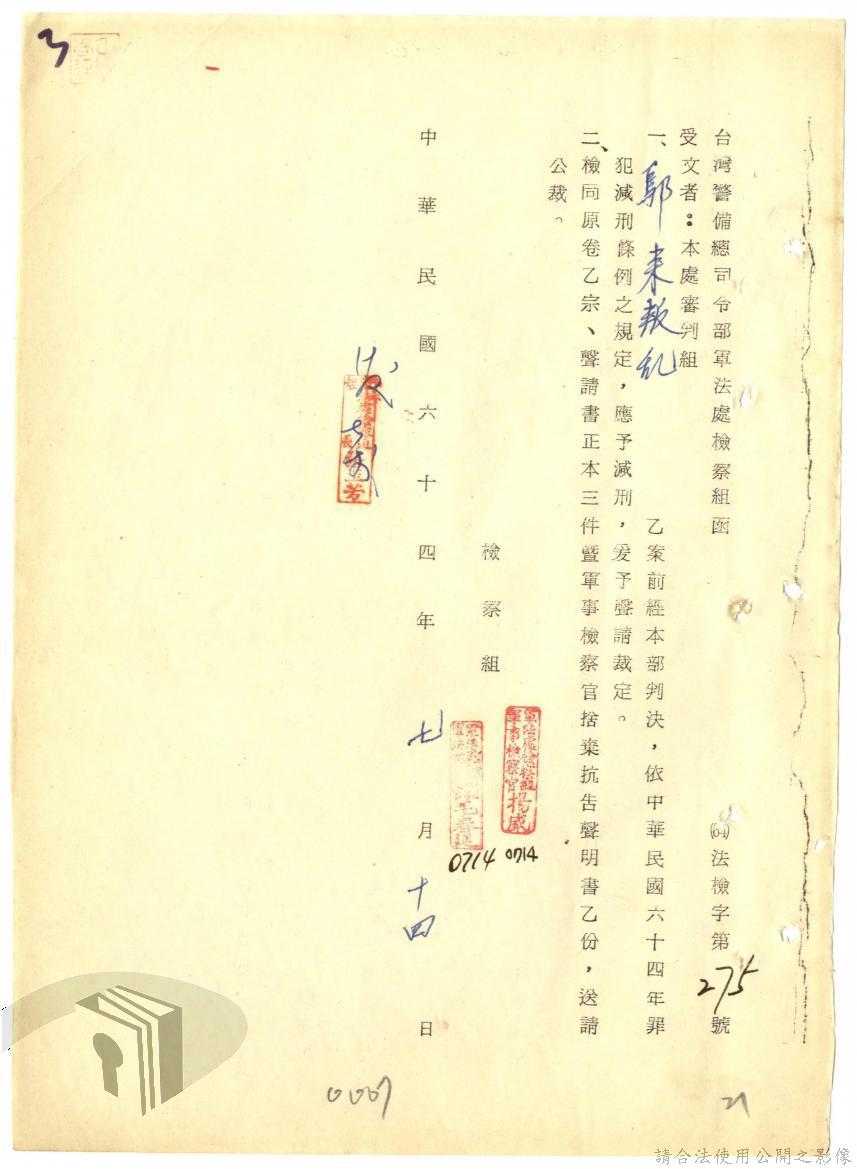 3
台灣警備總司令部軍法處檢察組函
(64)法檢字第275號
受文者：本處審判組
一、鄔来叛乱乙案前經本部判決，依中華民國六十四年罪
犯減刑條例之規定，應予減刑，爰予聲請裁定。
二、檢同原卷乙宗、聲請書正本三件暨軍事檢察官捨棄抗告聲明書乙份，送請
公裁。
檢察組
軍法處檢察組
軍事檢察官楊威
0714
0714
中華民國六十四年七月十四日
0007
21
請合法使用公開之影像